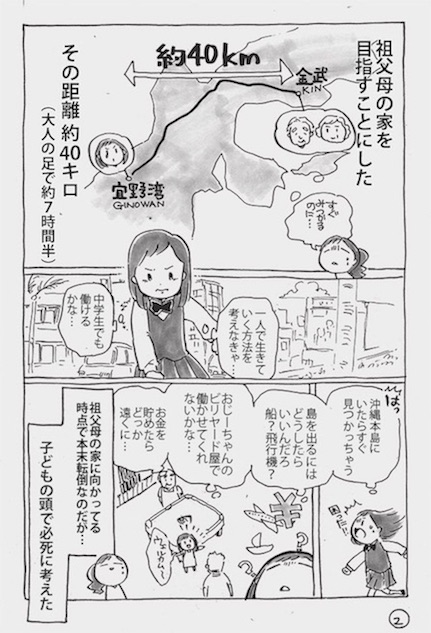 祖父母の家を
目指すことにした
約40km
金武
KIN
宜野湾
GINOWAN
その距離 約40キロ
(大人の足で約7時間半)
すぐ
みつかる
のに…
一人で生きて
いく方法を
考えなきゃ…
中学生でも
働ける
かな…
はっ
沖縄本島に
いたらすぐ
見つかっちゃう
困った!!
島を出るには
どうしたら
いいんだろ
船?飛行機?
¥
?
?
おじーちゃんの
ビリヤード屋で
働かせてくれ
ないかな…
お金を
貯めたら
どっか
遠くに…
ウェルカム〜
祖父母の家に向かってる
時点で本末転倒なのだが…
子どもの頭で必死に考えた
2